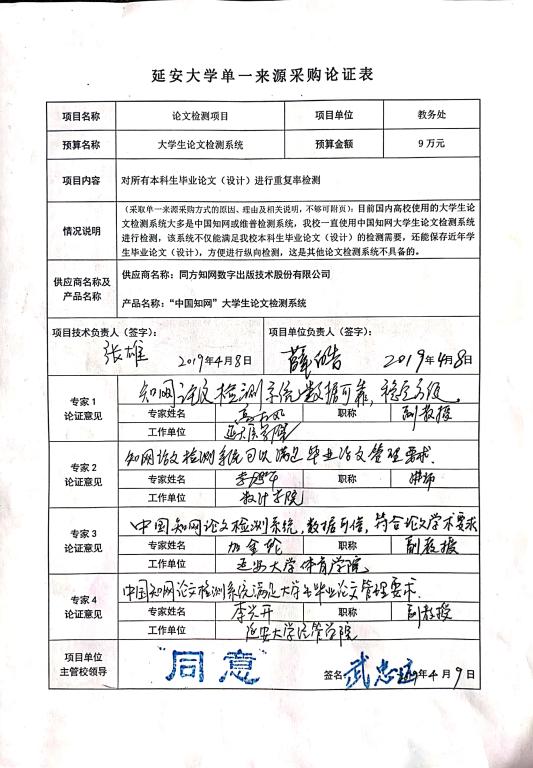 延安大学单一来源采购论证表
项目名称 论文检测项目 项目单位 教务处
预算名称 大学生论文检测系统 预算金额 9万元
项目内容 对所有本科生毕业论文（设计）进行重复率检测
情况说明
（采取单一来源采购方式的原因、理由及相关说明，不够可附页）：目前国内高校使用的大学生论
文检测系统大多是中国知网或维普检测系统，我校一直使用中国知网大学生论文检测系统
进行检测，该系统不仅能满足我校本科生毕业论文（设计）的检测需要，还能保存近年学
生毕业论文（设计），方便进行纵向检测，这是其他论文检测系统不具备的。
供应商名称及
产品名称
供应商名称：同方知网数字出版技术股份有限公司
产品名称：“中国知网”大学生论文检测系统
项目技术负责人（签字）： 项目单位负责人（签字）：
张雄 2019年4月8日 薛皓 2019年4月8日
专家1
论证意见
知网论文检测系统数据可靠，稳定
专家姓名 职称 副教授
工作单位
专家2
论证意见
知网论文检测系统可以满足毕业论文管理要求.
专家姓名 职称 讲师
工作单位 数计学院
专家3
论证意见
中国知网论文检测系统，数据可信，符合论文学术要求
专家姓名 职称 副教授
工作单位 延安大学体育学院
专家4
论证意见
中国知网论文检测系统满足大学生毕业论文管理要求.
专家姓名 职称 副教授
工作单位 延安大学经管学院
项目单位
主管校领导
同意
签名： 武忠远 年4月9日